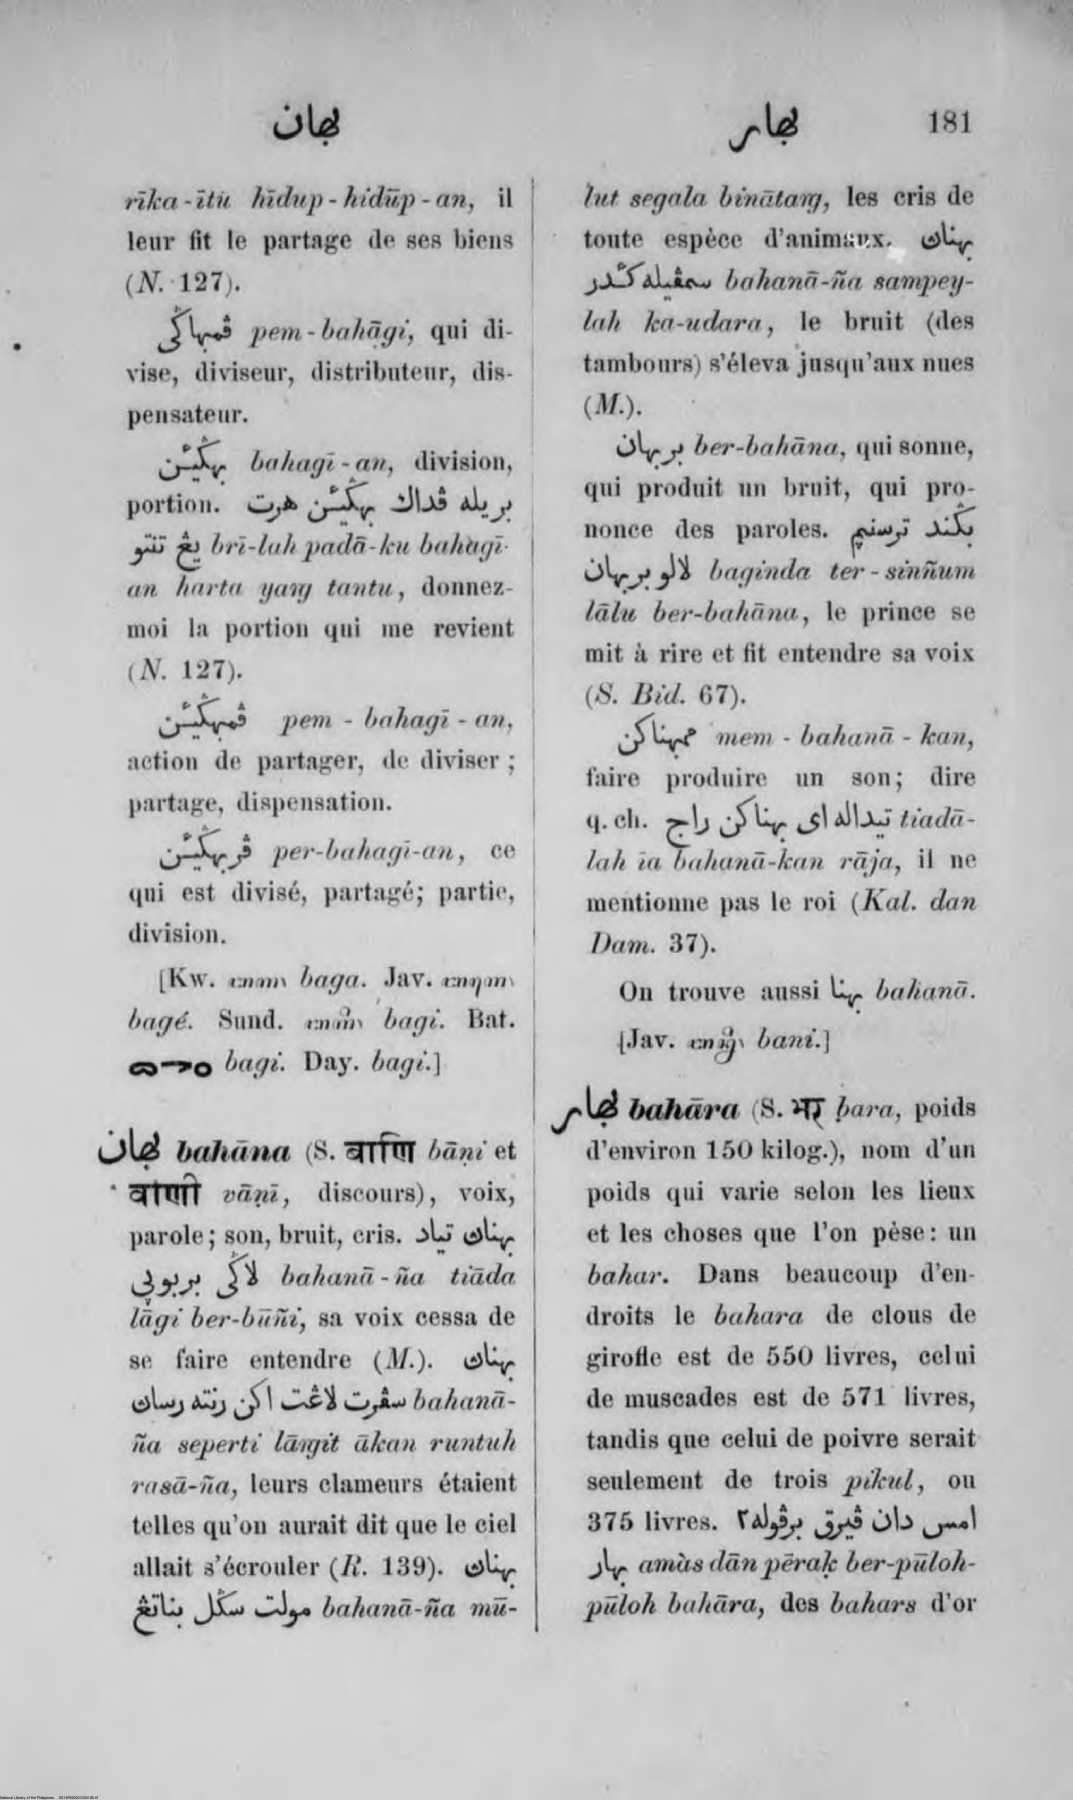 بهان
بهار
181
rīka-ītu hīdup-hidūp-an, il
leur fit le partage de ses biens
(N. 127).
ڤمبهاݢي pem-bahāgi, qui di-
vise, diviseur, distributeur, dis-
pensateur.
بهݢيئن bahagī-an, division,
portion. بريله ڤداك بهݢيئن هرت
يڠ تنتو brī-lah padā-ku bahagī-
an harta yaṅg tantu, donnez-
moi la portion qui me revient
(N. 127).
ڤمبهݢيئن pem-bahagī-an,
action de partager, de diviser;
partage, dispensation.
ڤربهݢيئن per-bahagī-an, ce
qui est divisé, partagé; partie,
division.
[Kw. baga. Jav.
bagé. Sund. bagi. Bat.
bagi. Day. bagi.]
بهان bahāna (S. वाणि bāṇi et
वाणी vāṇī, discours), voix,
parole; son, bruit, cris. بهناڽ تياد
لاݢي بربوڽي bahanā-ña tiāda
lāgi ber-būñi, sa voix cessa de
se faire entendre (M.). بهناڽ
سڤرت لاڠت اكن رنته رساڽ bahanā-
ña seperti lāṅgit ākan runtuh
rasā-ña, leurs clameurs étaient
telles qu'on aurait dit que le ciel
allait s'écrouler (R. 139). بهناڽ
مولت سݢل بناتڠ bahanā-ña mū-
lut segala binātaṅg, les cris de
toute espèce d'animaux. بهناڽ
سمڤيله كئدر bahanā-ña sampey-
lah ka-udara, le bruit (des
tambours) s'éleva jusqu'aux nues
(M.).
بربهان ber-bahāna, qui sonne,
qui produit un bruit, qui pro-
nonce des paroles. بݢند ترسنڽم
لالو بربهان baginda ter-sinñum
lālu ber-bahāna, le prince se
mit à rire et fit entendre sa voix
(S. Bid. 67).
ممبهناكن mem-bahanā-kan,
faire produire un son; dire
q. ch. تيداله اي بهناكن راج tiadā-
lah īa bahanā-kan rāja, il ne
mentionne pas le roi (Kal. dan
Dam. 37).
On trouve aussi بهنا bahanā.
[Jav. bani.]
بهار bahāra (S. भार ḅara, poids
d'environ 150 kilog.), nom d'un
poids qui varie selon les lieux
et les choses que l'on pèse: un
bahar. Dans beaucoup d'en-
droits le bahara de clous de
girofle est de 550 livres, celui
de muscades est de 571 livres,
tandis que celui de poivre serait
seulement de trois pikul, ou
375 livres. امس دان ڤيرق برڤوله٢
بهار amàs dān pēraḳ ber-pūloh-
pūloh bahāra, des bahars d'or